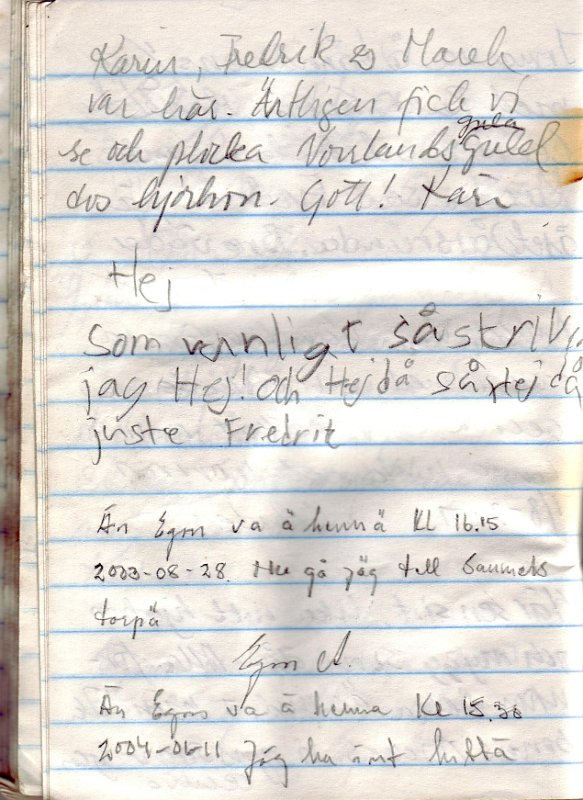 Karin, Fredrik & Marek
var här. Äntligen fick vi
se och plocka Norrlands gula guld
dvs hjortron. Gott! Karin
Hej
Som vannligt så skriver
jag Hej! och Hej då så Hej då
juste Fredrik
Än Egon va ä hennä Kl 16.15
2003-08-28. Nu gå jäg tell
torpä
Egon A.
Än Egon va ä henna Kl 15.30
2004-06-11 Jäg ha int hittä